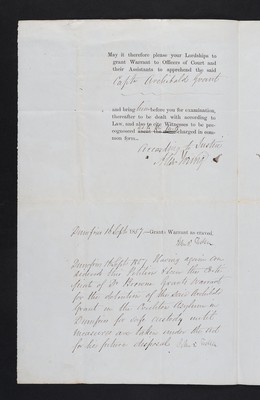 May it therefore please your Lordships to
grant Warrant to Officers of Court and
their Assistants to apprehend the said
Captn Archibald Grant
and bring him before you for examination,
thereafter to be dealt with according to
Law, and also to cite Witnesses to be pre-
cognosced charged in com-
mon form.
According to Justice
Dumfries 16 Sept 1857.—Grant Warrant as craved.
Dumfries 16 Sept 1857 Having again con-
sidered this Petition & seen the
of Dr Grants warrant
for the detention of the said Archibald
Grant in the Crichton Asylum in
Dumfries for safe custody until
measures are taken under the act
for his future disposal